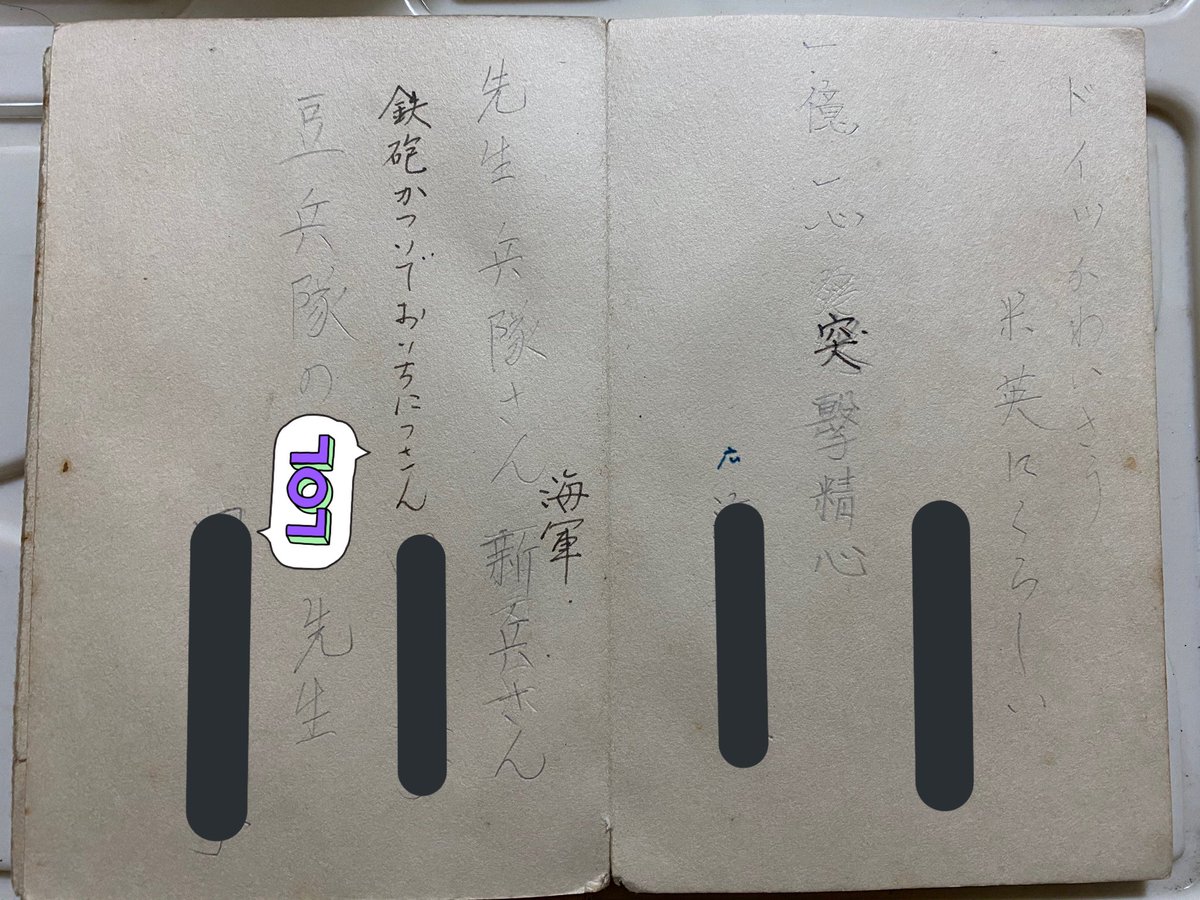 ドイツかわいさう
米英にくらしい
一億一心
突撃精心
広
先生兵隊さん
海軍
新兵さん
鉄砲かついでおいちにつさん
豆兵隊の
先生
LOL